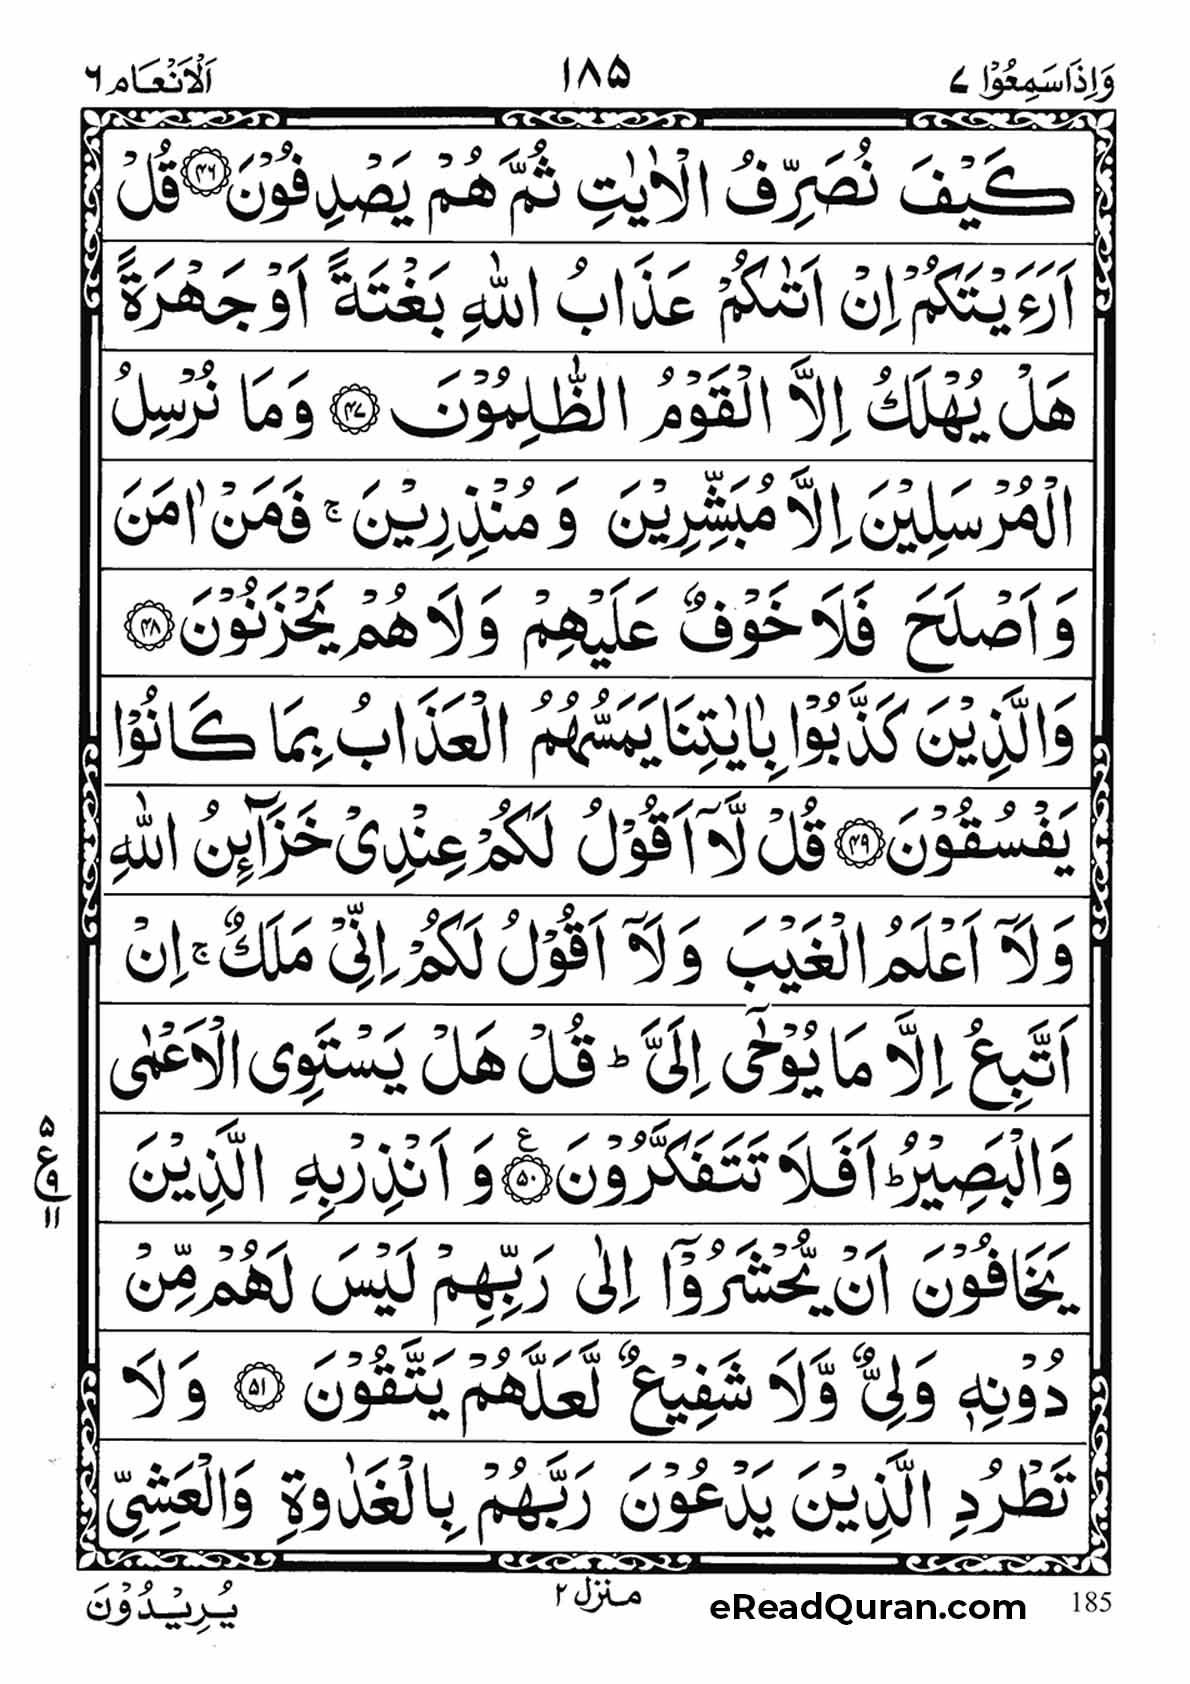 وَاِذَا سَمِعُوْا ٧
١٨۵
اَلْاَنْعَام ٦
كَيْفَ نُصَرِّفُ الْاٰيٰتِ ثُمَّ هُمْ يَصْدِفُوْنَ ۴۶ قُلْ
اَرَءَيْتَكُمْ اِنْ اَتٰىكُمْ عَذَابُ اللّٰهِ بَغْتَةً اَوْ جَهْرَةً
هَلْ يُهْلَكُ اِلَّا الْقَوْمُ الظّٰلِمُوْنَ ۴۷ وَمَا نُرْسِلُ
الْمُرْسَلِيْنَ اِلَّا مُبَشِّرِيْنَ وَ مُنْذِرِيْنَ ۚ فَمَنْ اٰمَنَ
وَاَصْلَحَ فَلَا خَوْفٌ عَلَيْهِمْ وَلَا هُمْ يَحْزَنُوْنَ ۴۸
وَالَّذِيْنَ كَذَّبُوْا بِاٰيٰتِنَا يَمَسُّهُمُ الْعَذَابُ بِمَا كَانُوْا
يَفْسُقُوْنَ ۴۹ قُلْ لَّاۤ اَقُوْلُ لَكُمْ عِنْدِيْ خَزَآئِنُ اللّٰهِ
وَلَاۤ اَعْلَمُ الْغَيْبَ وَلَاۤ اَقُوْلُ لَكُمْ اِنِّيْ مَلَكٌ ۚ اِنْ
اَتَّبِعُ اِلَّا مَا يُوْحٰۤى اِلَيَّ ؕ قُلْ هَلْ يَسْتَوِى الْاَعْمٰى
وَالْبَصِيْرُ ؕ اَفَلَا تَتَفَكَّرُوْنَ ۵۰ ع وَ اَنْذِرْ بِهِ الَّذِيْنَ
۵
ع ۹
۱۱
يَخَافُوْنَ اَنْ يُّحْشَرُوْۤا اِلٰى رَبِّهِمْ لَيْسَ لَهُمْ مِّنْ
دُوْنِهٖ وَلِيٌّ وَّلَا شَفِيْعٌ لَّعَلَّهُمْ يَتَّقُوْنَ ۵۱ وَلَا
تَطْرُدِ الَّذِيْنَ يَدْعُوْنَ رَبَّهُمْ بِالْغَدٰوةِ وَالْعَشِيِّ
185
eReadQuran.com
منزل ٢
يُرِيْدُوْنَ